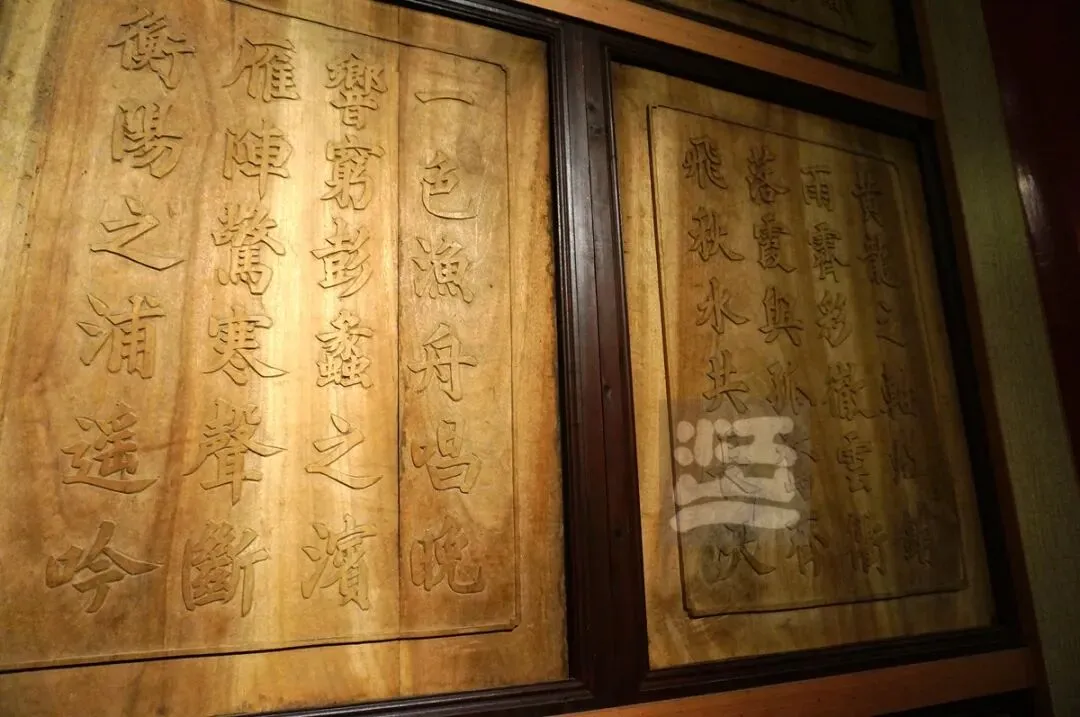 黃龍之軸
雨霽彩徹雲衢
落霞與孤齊
飛秋水共天
一色漁舟唱晚
響窮彭蠡之濱
雁陣驚寒聲斷
衡陽之浦遙吟